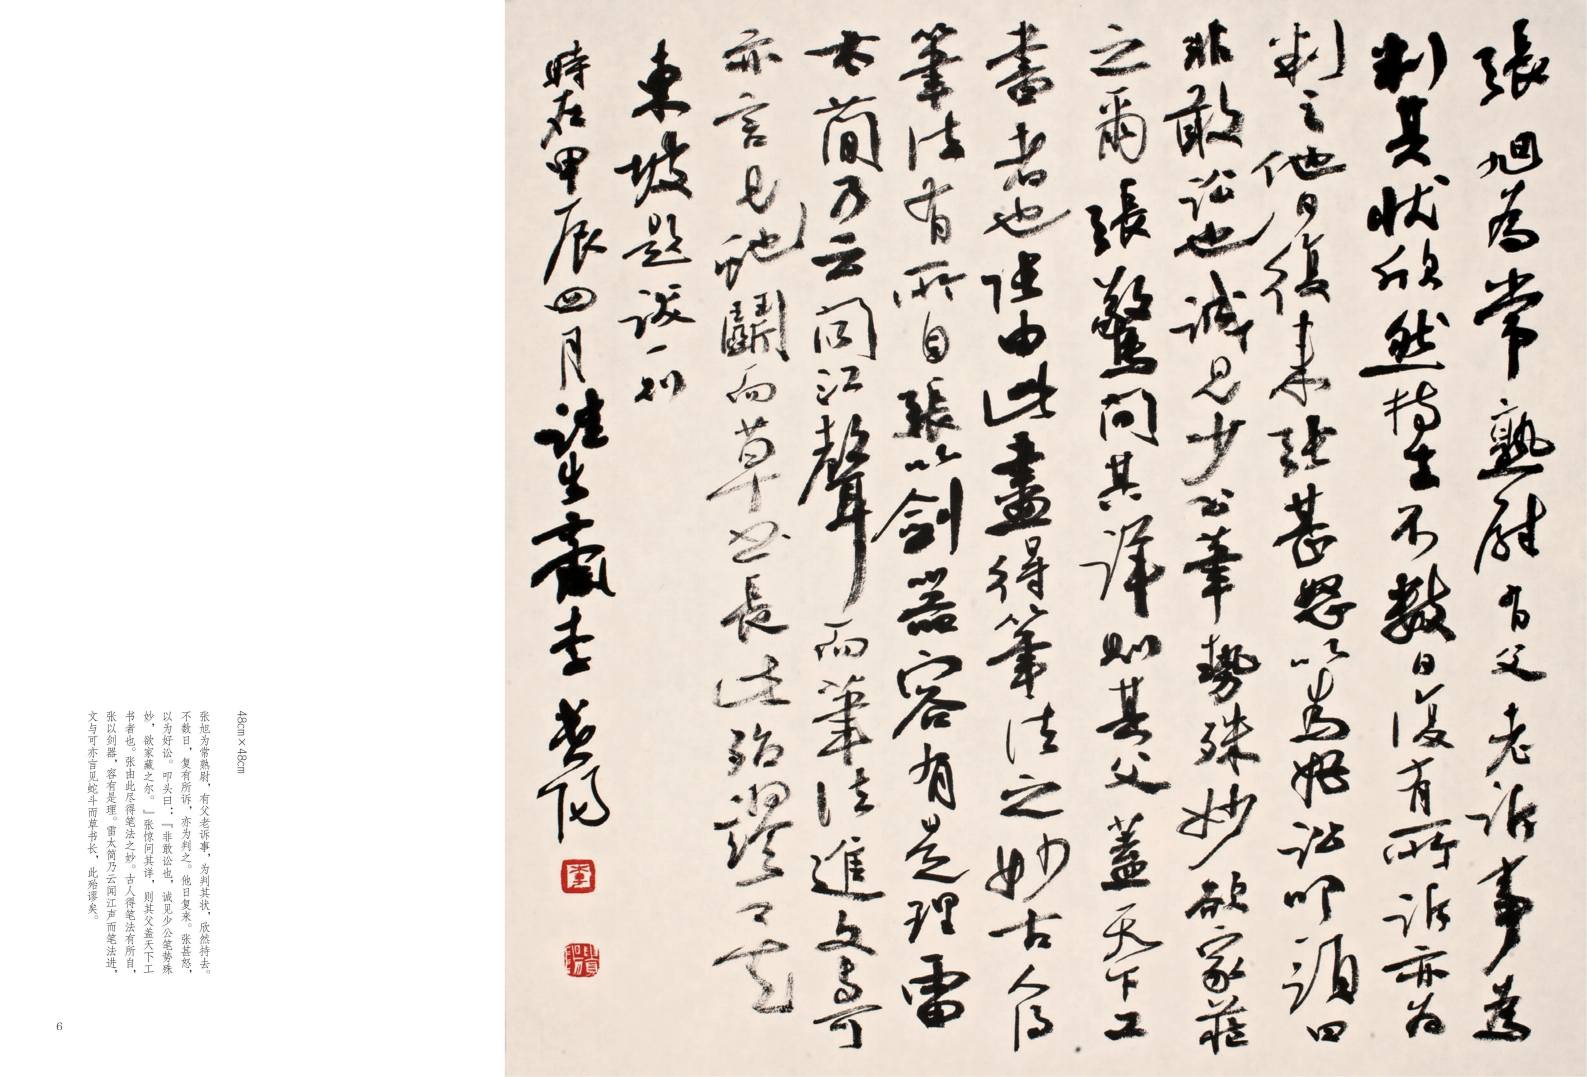 張旭為常熟尉有父老訴事為
判其狀欣然持去不數日復有所訴亦為
判之他日復来張甚怒以為好訟叩頭曰
非敢訟也誠見少公筆勢殊妙欲家藏
之爾張驚問其詳則其父蓋天下工
書者也張由此盡得筆法之妙古人得
筆法有所自張以劍器容有是理雷
太簡乃云聞江聲而筆法進文與可
亦言見蛇鬭而草書長此殆謬矣
東坡題跋一則
時在甲辰四月生齋李陽
李
48cm×48cm
张旭为常熟尉，有父老诉事，为判其状，欣然持去。
不数日，复有所诉，亦为判之。他日复来。张甚怒，
以为好讼。叩头曰：『非敢讼也，诚见少公笔势殊
妙，欲家藏之尔。』张惊问其详，则其父盖天下工
书者也。张由此尽得笔法之妙。古人得笔法有所自，
张以剑器，容有是理。雷太简乃云闻江声而笔法进，
文与可亦言见蛇斗而草书长，此殆谬矣。
6